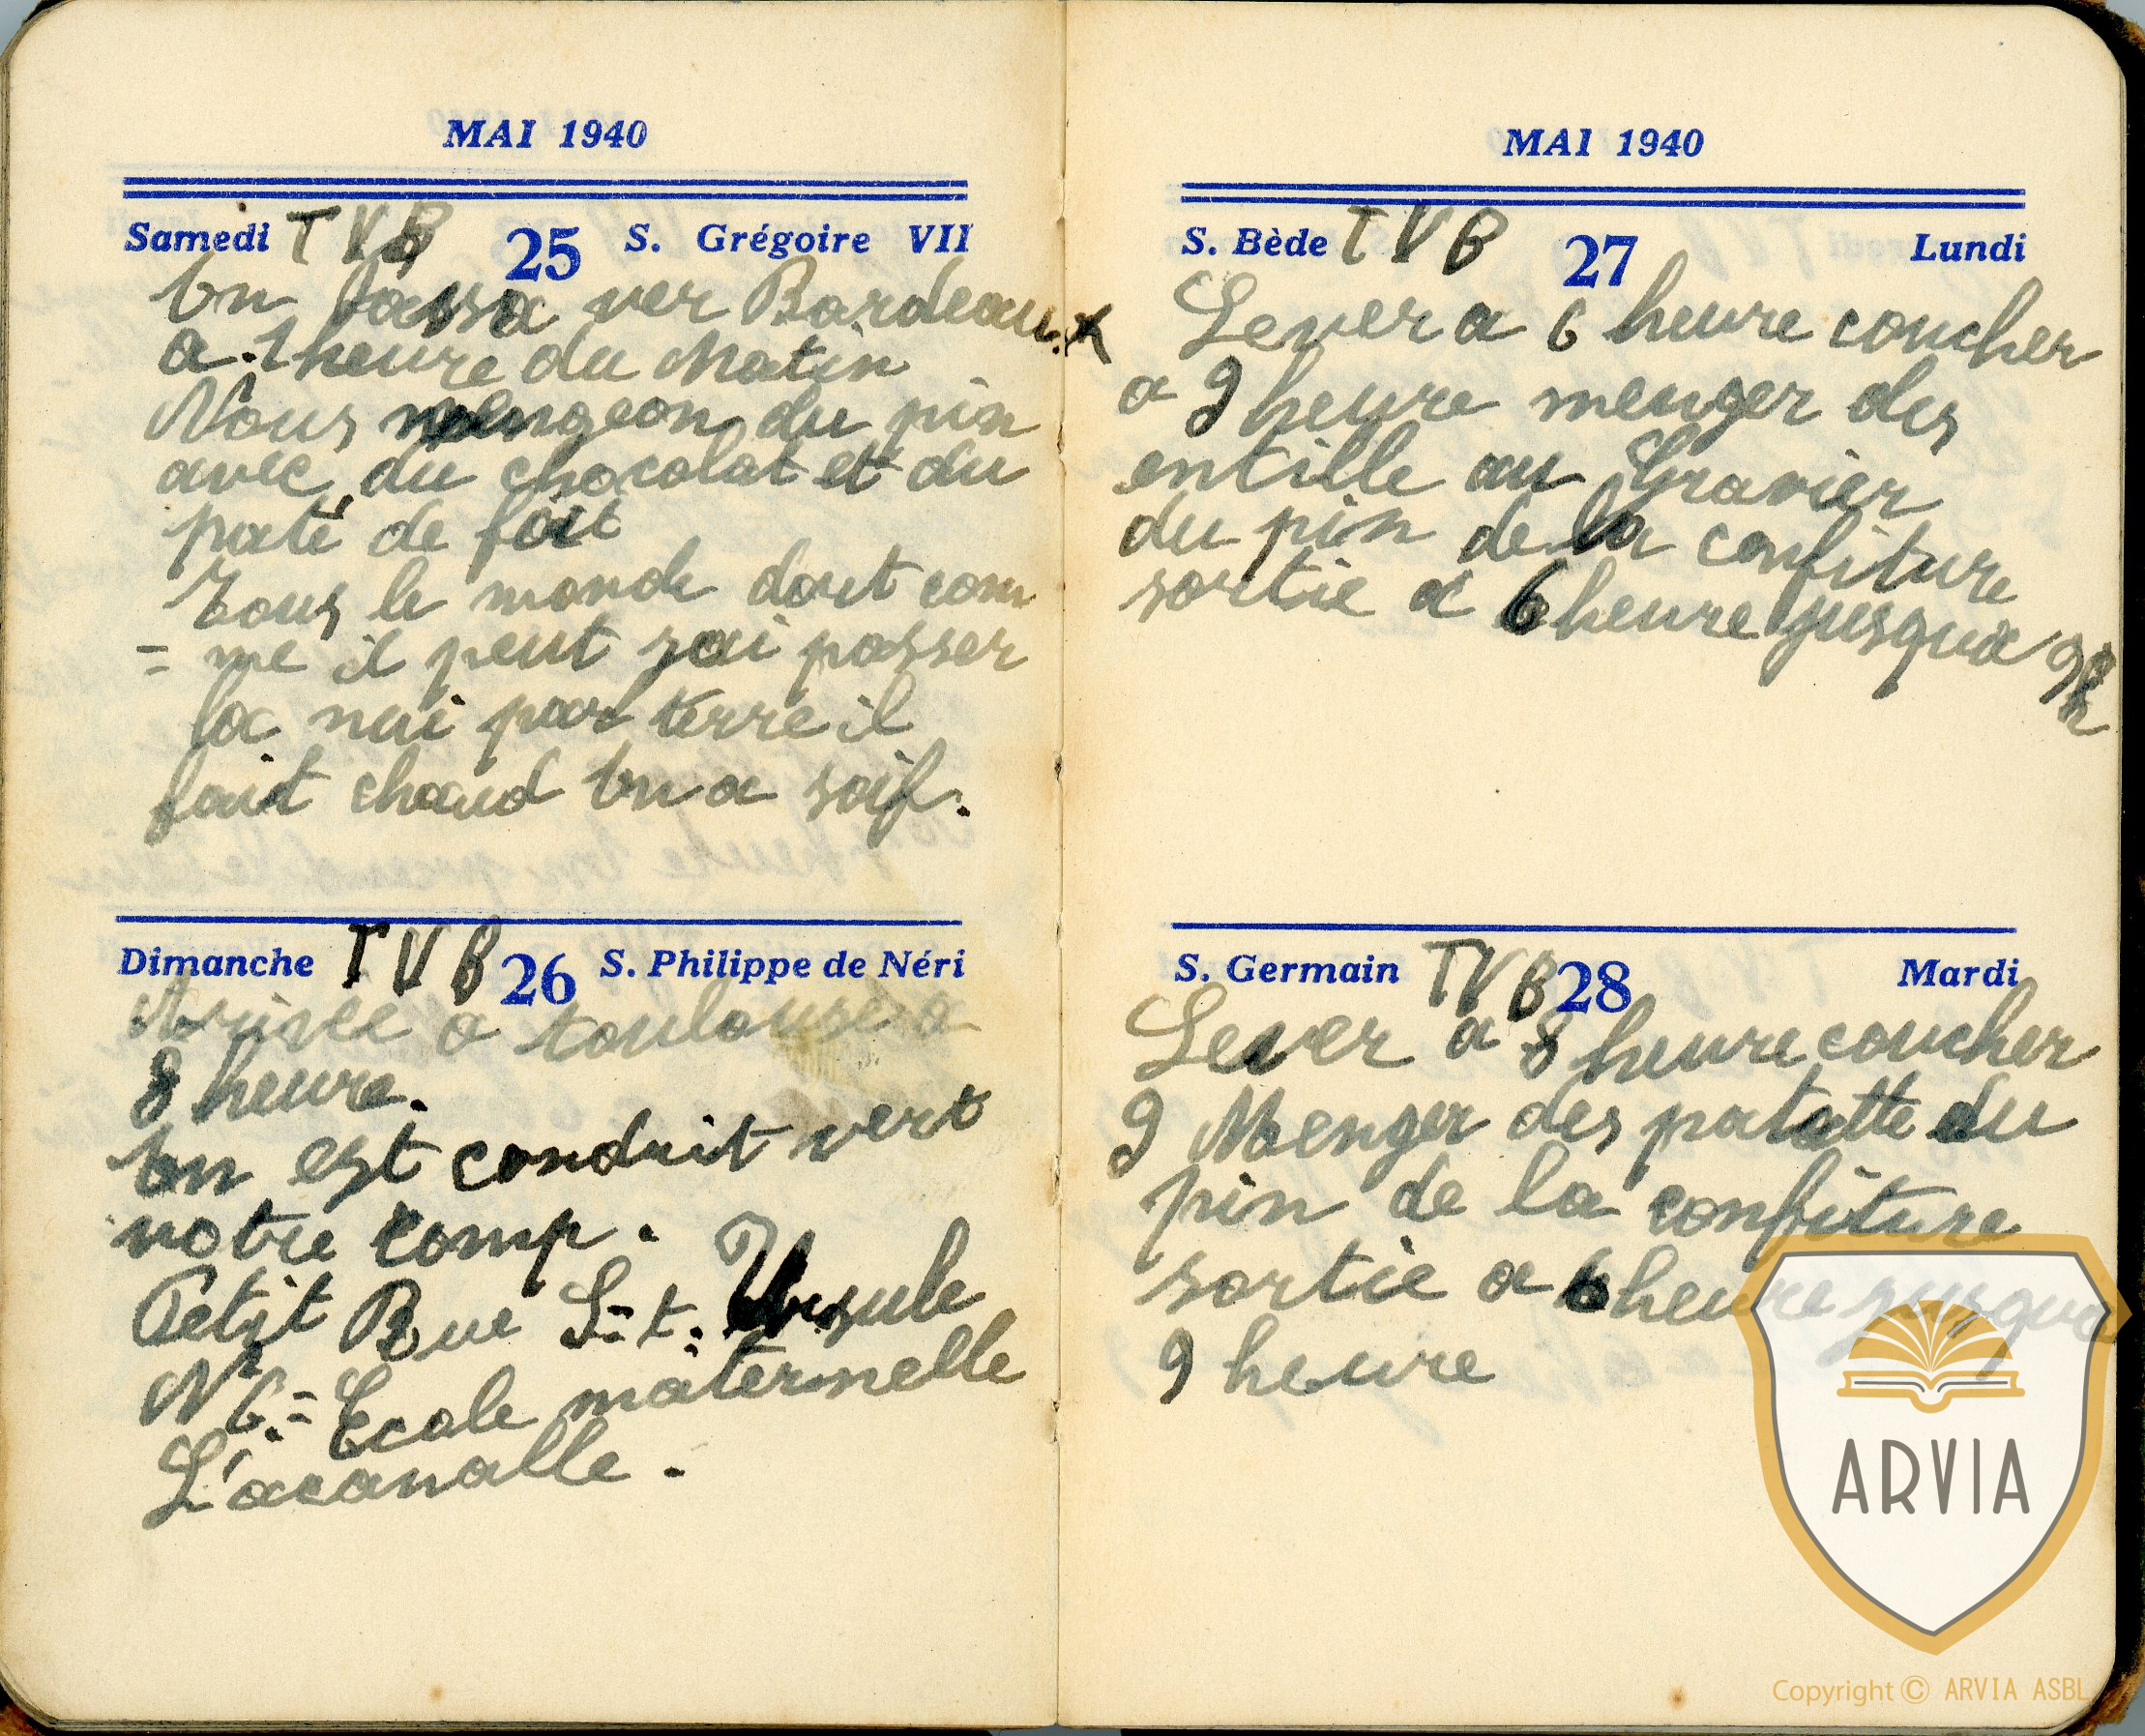 MAI 1940
Samedi TVB 25 S. Grégoire VII
On passa ver Bordeaux
a 1 heure du Matin
Nous mengeon du pin
avec du chocolat et du
paté de foit
Tous le monde dort com
= me il peut sai passer
la nui par terre il
fait chaud On a soif.
Dimanche TVB 26 S. Philippe de Néri
Arivee a toulouse a
8 heure.
On est conduit vert
notre comp.
Petit Rue S=t: Ursule
N° 6 = Ecole maternelle
L'acanalle.
MAI 1940
S. Bède TVB 27 Lundi
Lever a 6 heure coucher
a 9 heure menger des
entille au Gravier
du pin de la confiture
sortie a 6 heure jusqua 9h
S. Germain TVB 28 Mardi
Lever a 8 heure coucher
9 Menger des patatte du
pin de la confiture
sortie a 6 heure jusqua
9 heure
ARVIA
Copyright © ARVIA ASBL